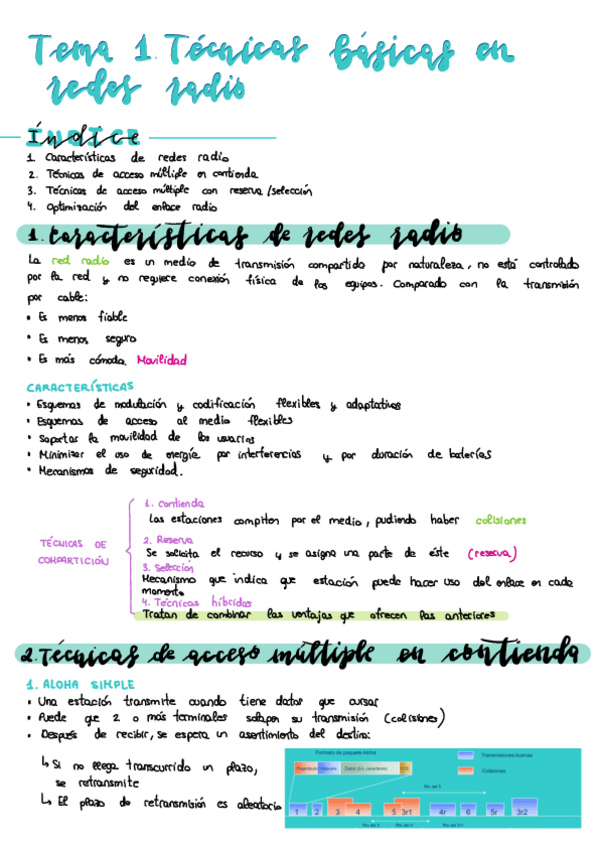 Tema 1. Técnicas básicas en
redes radio
Índice
1. Características de redes radio
2. Técnicas de acceso múltiple en contienda
3. Técnicas de acceso múltiple con reserva/selección
4. Optimización del enlace radio
1. Características de redes radio
La red radio es un medio de transmisión compartido por naturaleza, no está controlado
por la red y no requiere conexión física de los equipos. Comparado con la transmisión
por cable:
• Es menos fiable
• Es menos seguro
• Es más cómoda. Movilidad
CARACTERÍSTICAS
• Esquemas de modulación y codificación flexibles y adaptativos
• Esquemas de acceso al medio flexibles
• Soportar la movilidad de los usuarios
• Minimizar el uso de energía por interferencias y por duración de baterías
• Mecanismos de seguridad.
TÉCNICAS DE
COMPARTICIÓN
1. Contienda
Las estaciones compiten por el medio, pudiendo haber colisiones
2. Reserva
Se solicita el recurso y se asigna una parte de éste (reserva)
3. Selección
Mecanismo que indica que estación puede hacer uso del enlace en cada
momento
4. Técnicas híbridas
Tratan de combinar las ventajas que ofrecen las anteriores
2. Técnicas de acceso múltiple en contienda
1. ALOHA SIMPLE
• Una estación transmite cuando tiene datos que cursar
• Puede que 2 o más terminales solapen su transmisión (colisiones)
• Después de recibir, se espera un asentimiento del destino:
↳ Si no llega transcurrido un plazo,
se retransmite
↳ El plazo de retransmisión es aleatorio
Formato de paquete Aloha
Transmisiones buenas
Colisiones
1 2 3 4 5 3r1 4r 6 5r 3r2